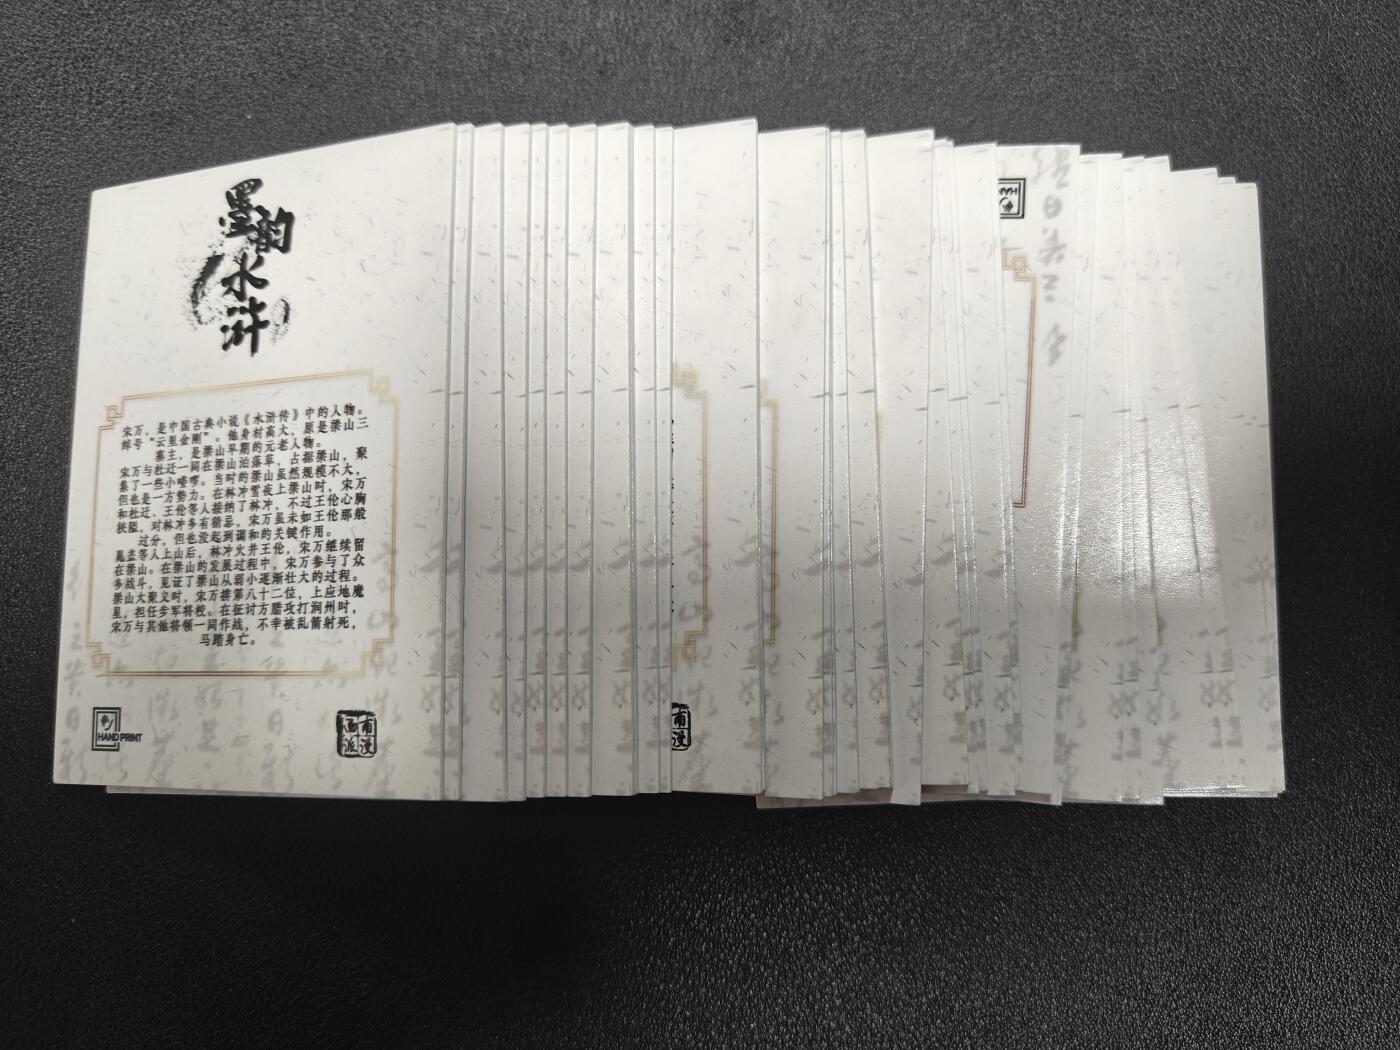 墨韵
水浒
宋万，是中国古典小说《水浒传》中的人物。
绰号“云里金刚”。他身材高大，原是梁山三
寨主，是梁山早期的元老人物。
宋万与杜迁一同在梁山泊落草，占据梁山，聚
集了一些小喽啰。当时的梁山虽然规模不大，
但也是一方势力。在林冲雪夜上梁山时，宋万
和杜迁、王伦等人接纳了林冲，不过王伦心胸
狭隘，对林冲多有猜忌，宋万虽未如王伦那般
过分，但也没起到调和的关键作用。
晁盖等人上山后，林冲火并王伦，宋万继续留
在梁山。在梁山的发展过程中，宋万参与了众
多战斗，见证了梁山从弱小逐渐壮大的过程。
梁山大聚义时，宋万排第八十二位，上应地魔
星，担任步军将校。在征讨方腊攻打润州时，
宋万与其他将领一同作战，不幸被乱箭射死，
马踏身亡。
HAND PRINT
甫漫
画派
甫漫
HAN